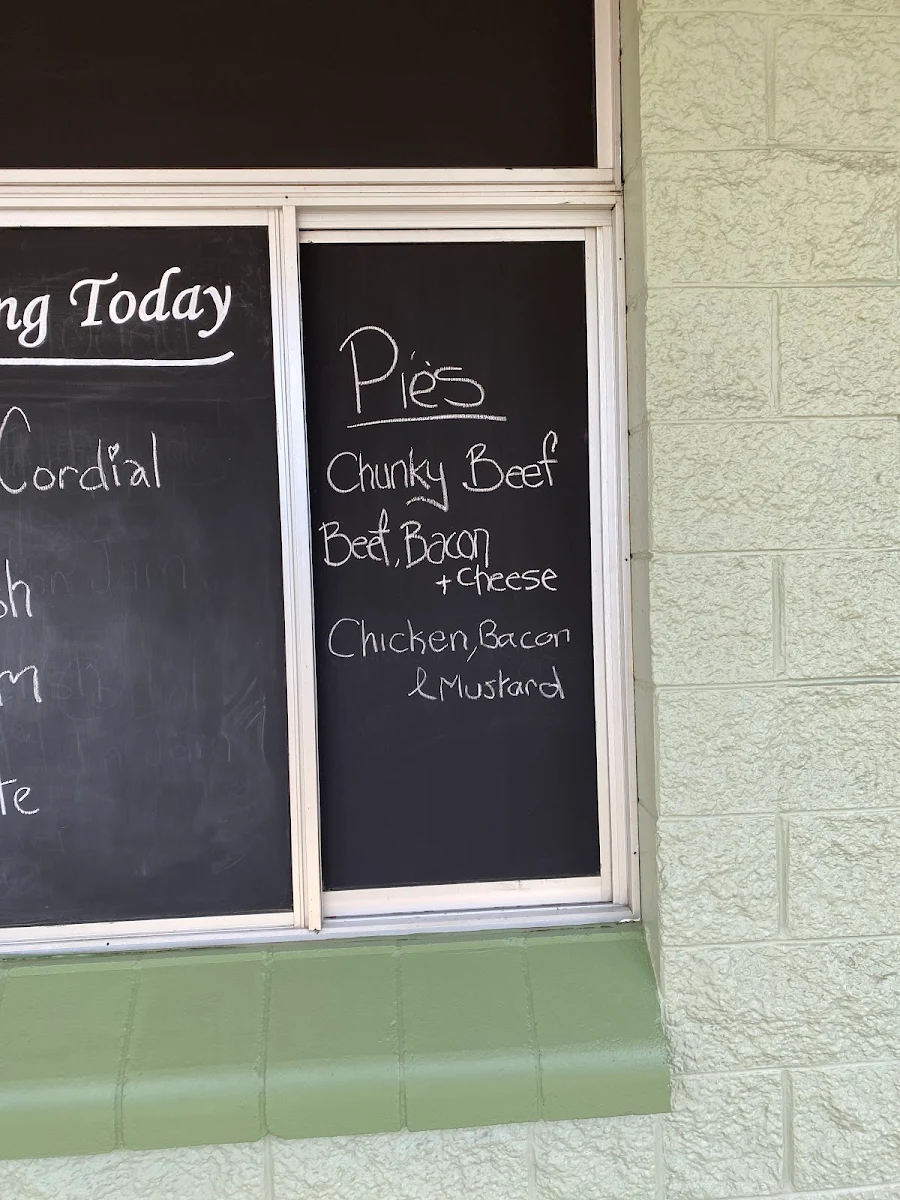 ng Today
Cordial
Pies
Chunky Beef
Beef, Bacon
+ cheese
Chicken, Bacon
& Mustard